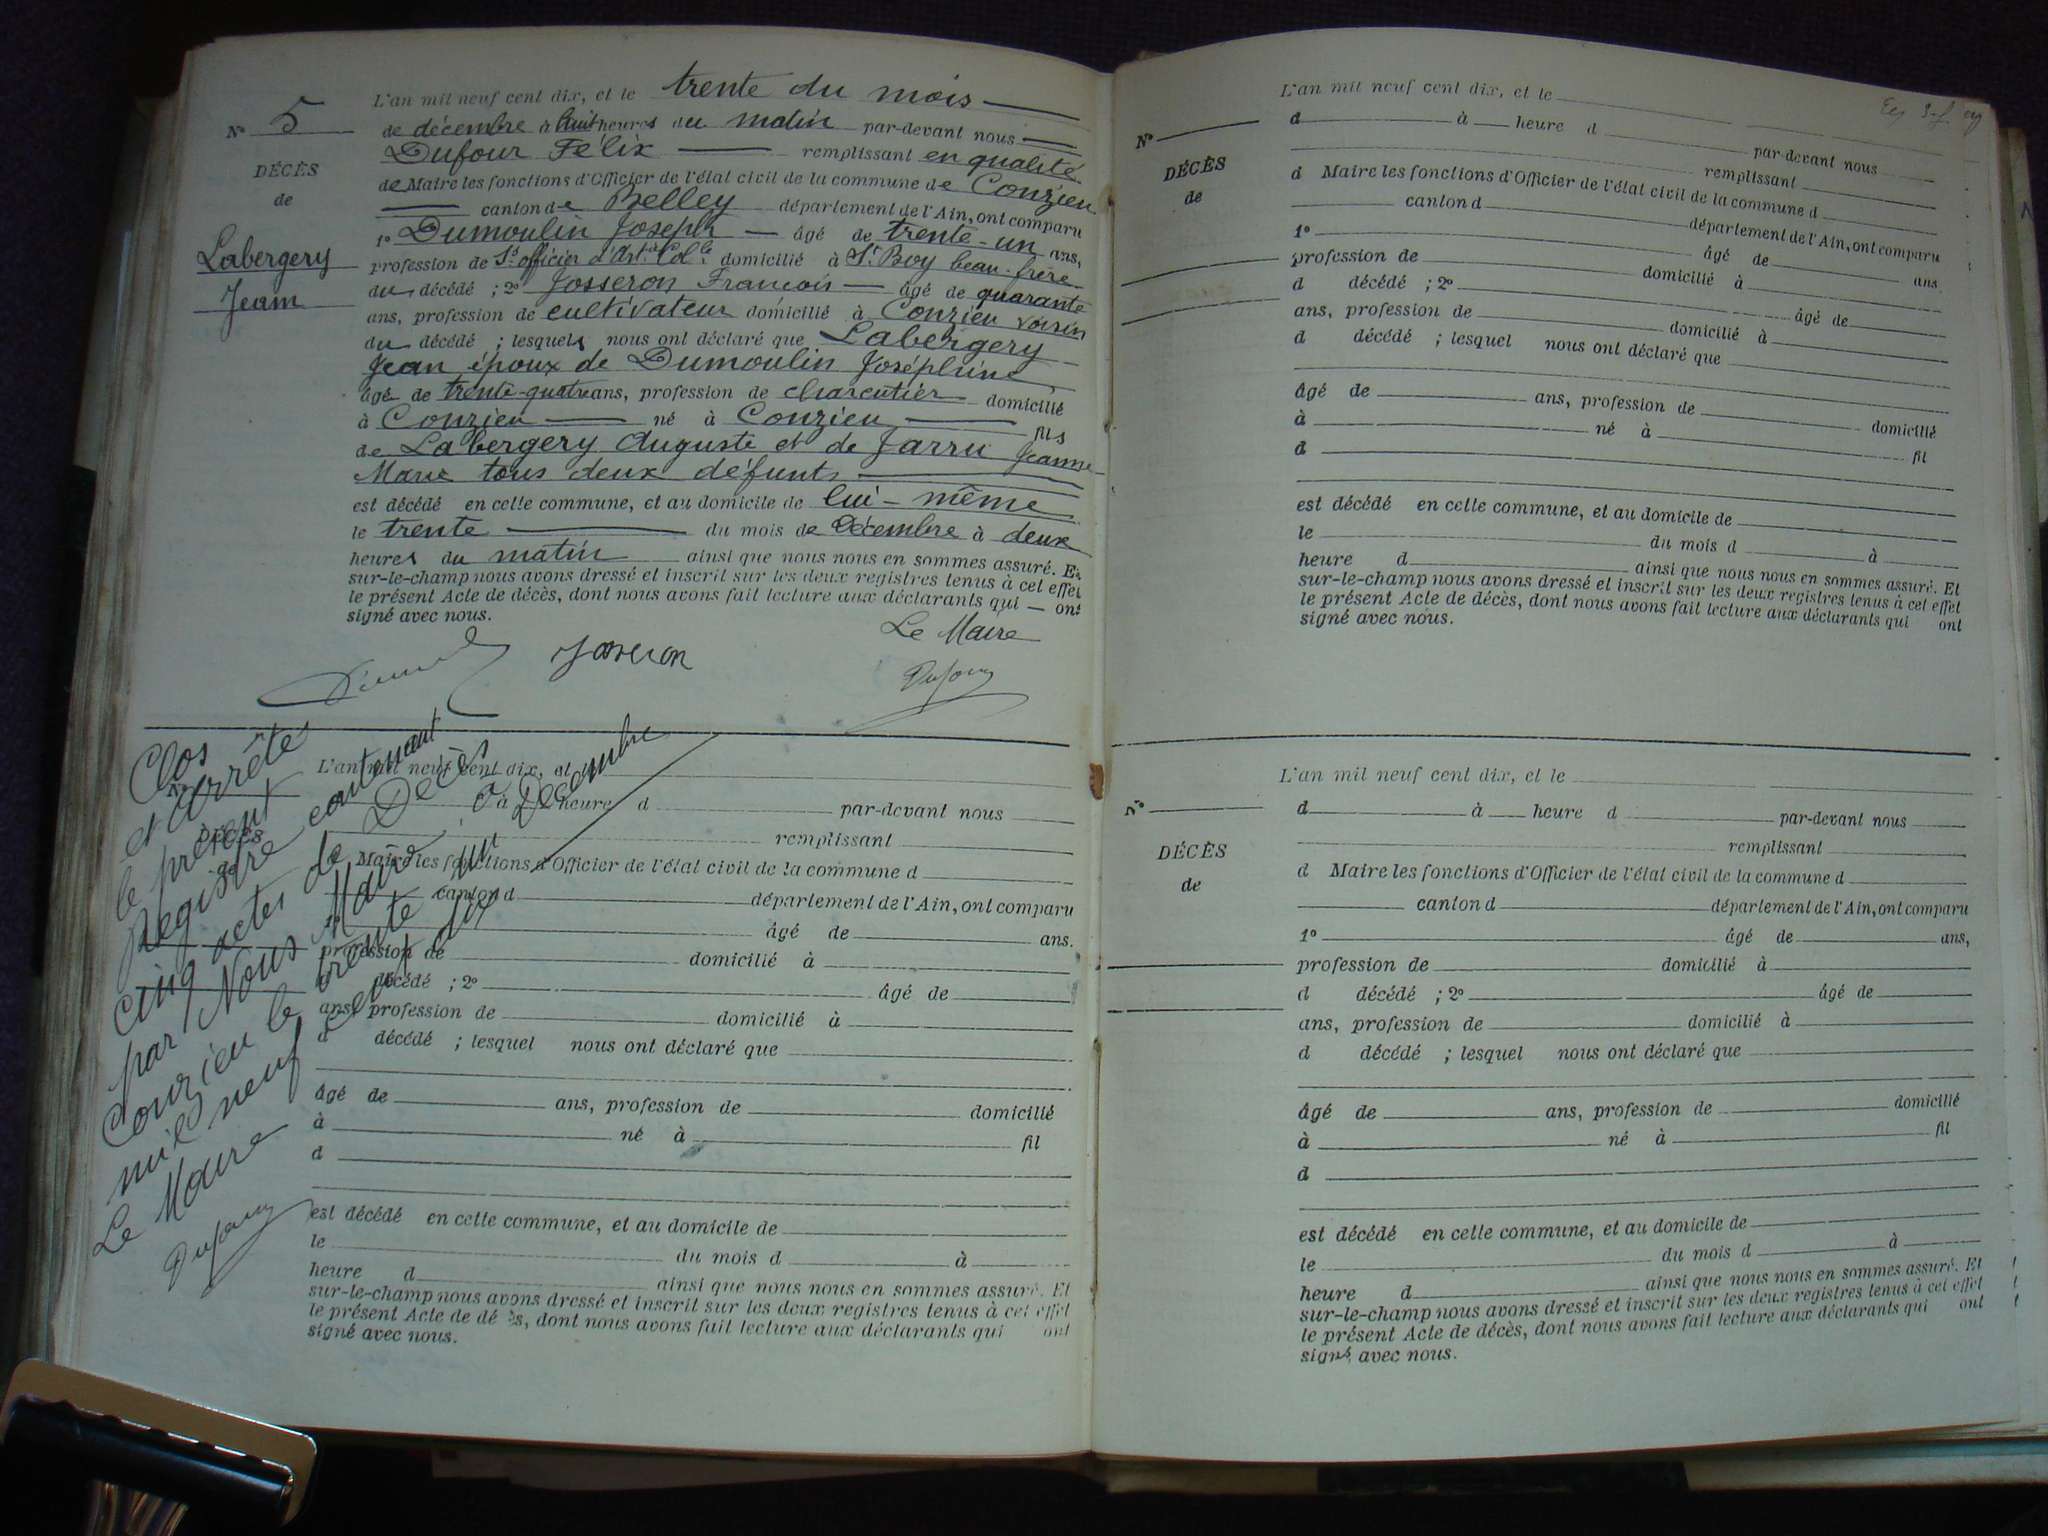 L'an mil neuf cent dix, et le trente du mois
N° 5
de décembre à huit heures du matin par-devant nous
Dufour Félix remplissant en qualité
DÉCÈS
de Maire les fonctions d'Officier de l'état civil de la commune de Conzieu
de
canton de Belley département de l'Ain, ont comparu
1° Dumoulin Joseph âgé de trente-un ans,
Labergery
profession de S.officier d'Art.ie Col.le domicilié à St Boy beau-frère
Jean
du décédé ; 2° Josseron Francois âgé de quarante
ans, profession de cultivateur domicilié à Conzieu voisin
du décédé ; lesquels nous ont déclaré que Labergery
Jean époux de Dumoulin Joséphine
âgé de trente-quatre ans, profession de charcutier domicilié
à Conzieu né à Conzieu fils
de Labergery Auguste et de Jarru Jeanne
Marie tous deux défunts
est décédé en cette commune, et au domicile de lui-même
le trente du mois de Décembre à deux
heures du matin ainsi que nous nous en sommes assuré. Et
sur-le-champ nous avons dressé et inscrit sur les deux registres tenus à cet effet
le présent Acte de décès, dont nous avons fait lecture aux déclarants qui ont
signé avec nous.
Le Maire
Josseron
Dufour
Clos
et arrêté
le présent
Registre contenant
cinq actes de Décès
par Nous Maire à
Conzieu le trente un Décembre
mil neuf cent dix
Le Maire
Dufour
L'an mil neuf cent dix, et le
N°
à heure d par-devant nous
remplissant
DÉCÈS
de
Maire les fonctions d'Officier de l'état civil de la commune d
canton d département de l'Ain, ont comparu
âgé de ans.
profession de domicilié à
décédé ; 2° âgé de
ans, profession de domicilié à
d décédé ; lesquel nous ont déclaré que
âgé de ans, profession de domicilié
à né à fil
d
est décédé en cette commune, et au domicile de
le du mois d à
heure d ainsi que nous nous en sommes assuré. Et
sur-le-champ nous avons dressé et inscrit sur les deux registres tenus à cet effet
le présent Acte de décès, dont nous avons fait lecture aux déclarants qui ont
signé avec nous.
L'an mil neuf cent dix, et le
N°
d à heure d par-devant nous
remplissant
DÉCÈS
de
d Maire les fonctions d'Officier de l'état civil de la commune d
canton d département de l'Ain, ont comparu
1° âgé de ans
profession de domicilié à
d décédé ; 2° âgé de
ans, profession de domicilié à
d décédé ; lesquel nous ont déclaré que
âgé de ans, profession de domicilié
à né à fil
d
est décédé en cette commune, et au domicile de
le du mois d à
heure d ainsi que nous nous en sommes assuré. Et
sur-le-champ nous avons dressé et inscrit sur les deux registres tenus à cet effet
le présent Acte de décès, dont nous avons fait lecture aux déclarants qui ont
signé avec nous.
L'an mil neuf cent dix, et le
N°
d à heure d par-devant nous
remplissant
DÉCÈS
de
d Maire les fonctions d'Officier de l'état civil de la commune d
canton d département de l'Ain, ont comparu
1° âgé de ans,
profession de domicilié à
d décédé ; 2° âgé de
ans, profession de domicilié à
d décédé ; lesquel nous ont déclaré que
âgé de ans, profession de domicilié
à né à fil
d
est décédé en cette commune, et au domicile de
le du mois d à
heure d ainsi que nous nous en sommes assuré. Et
sur-le-champ nous avons dressé et inscrit sur les deux registres tenus à cet effet
le présent Acte de décès, dont nous avons fait lecture aux déclarants qui ont
signé avec nous.